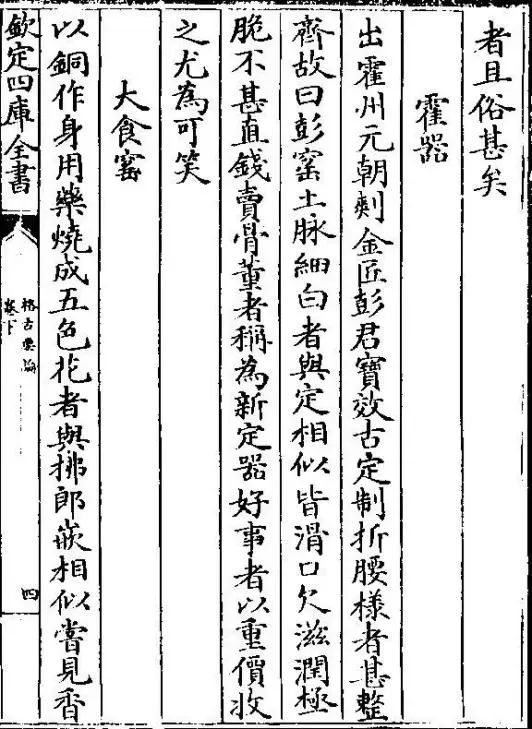 者且俗甚矣
霍器
出霍州元朝剡金匠彭君寶效古定制折腰様者甚整
齊故曰彭窑土脉細白者與定相似皆滑口欠滋潤極
脆不甚直錢賣骨董者稱為新定器好事者以重價收
之尤為可笑
大食窑
以銅作身用藥燒成五色花者與拂郎嵌相似嘗見香
欽定四庫全書
格古要論
卷下
四